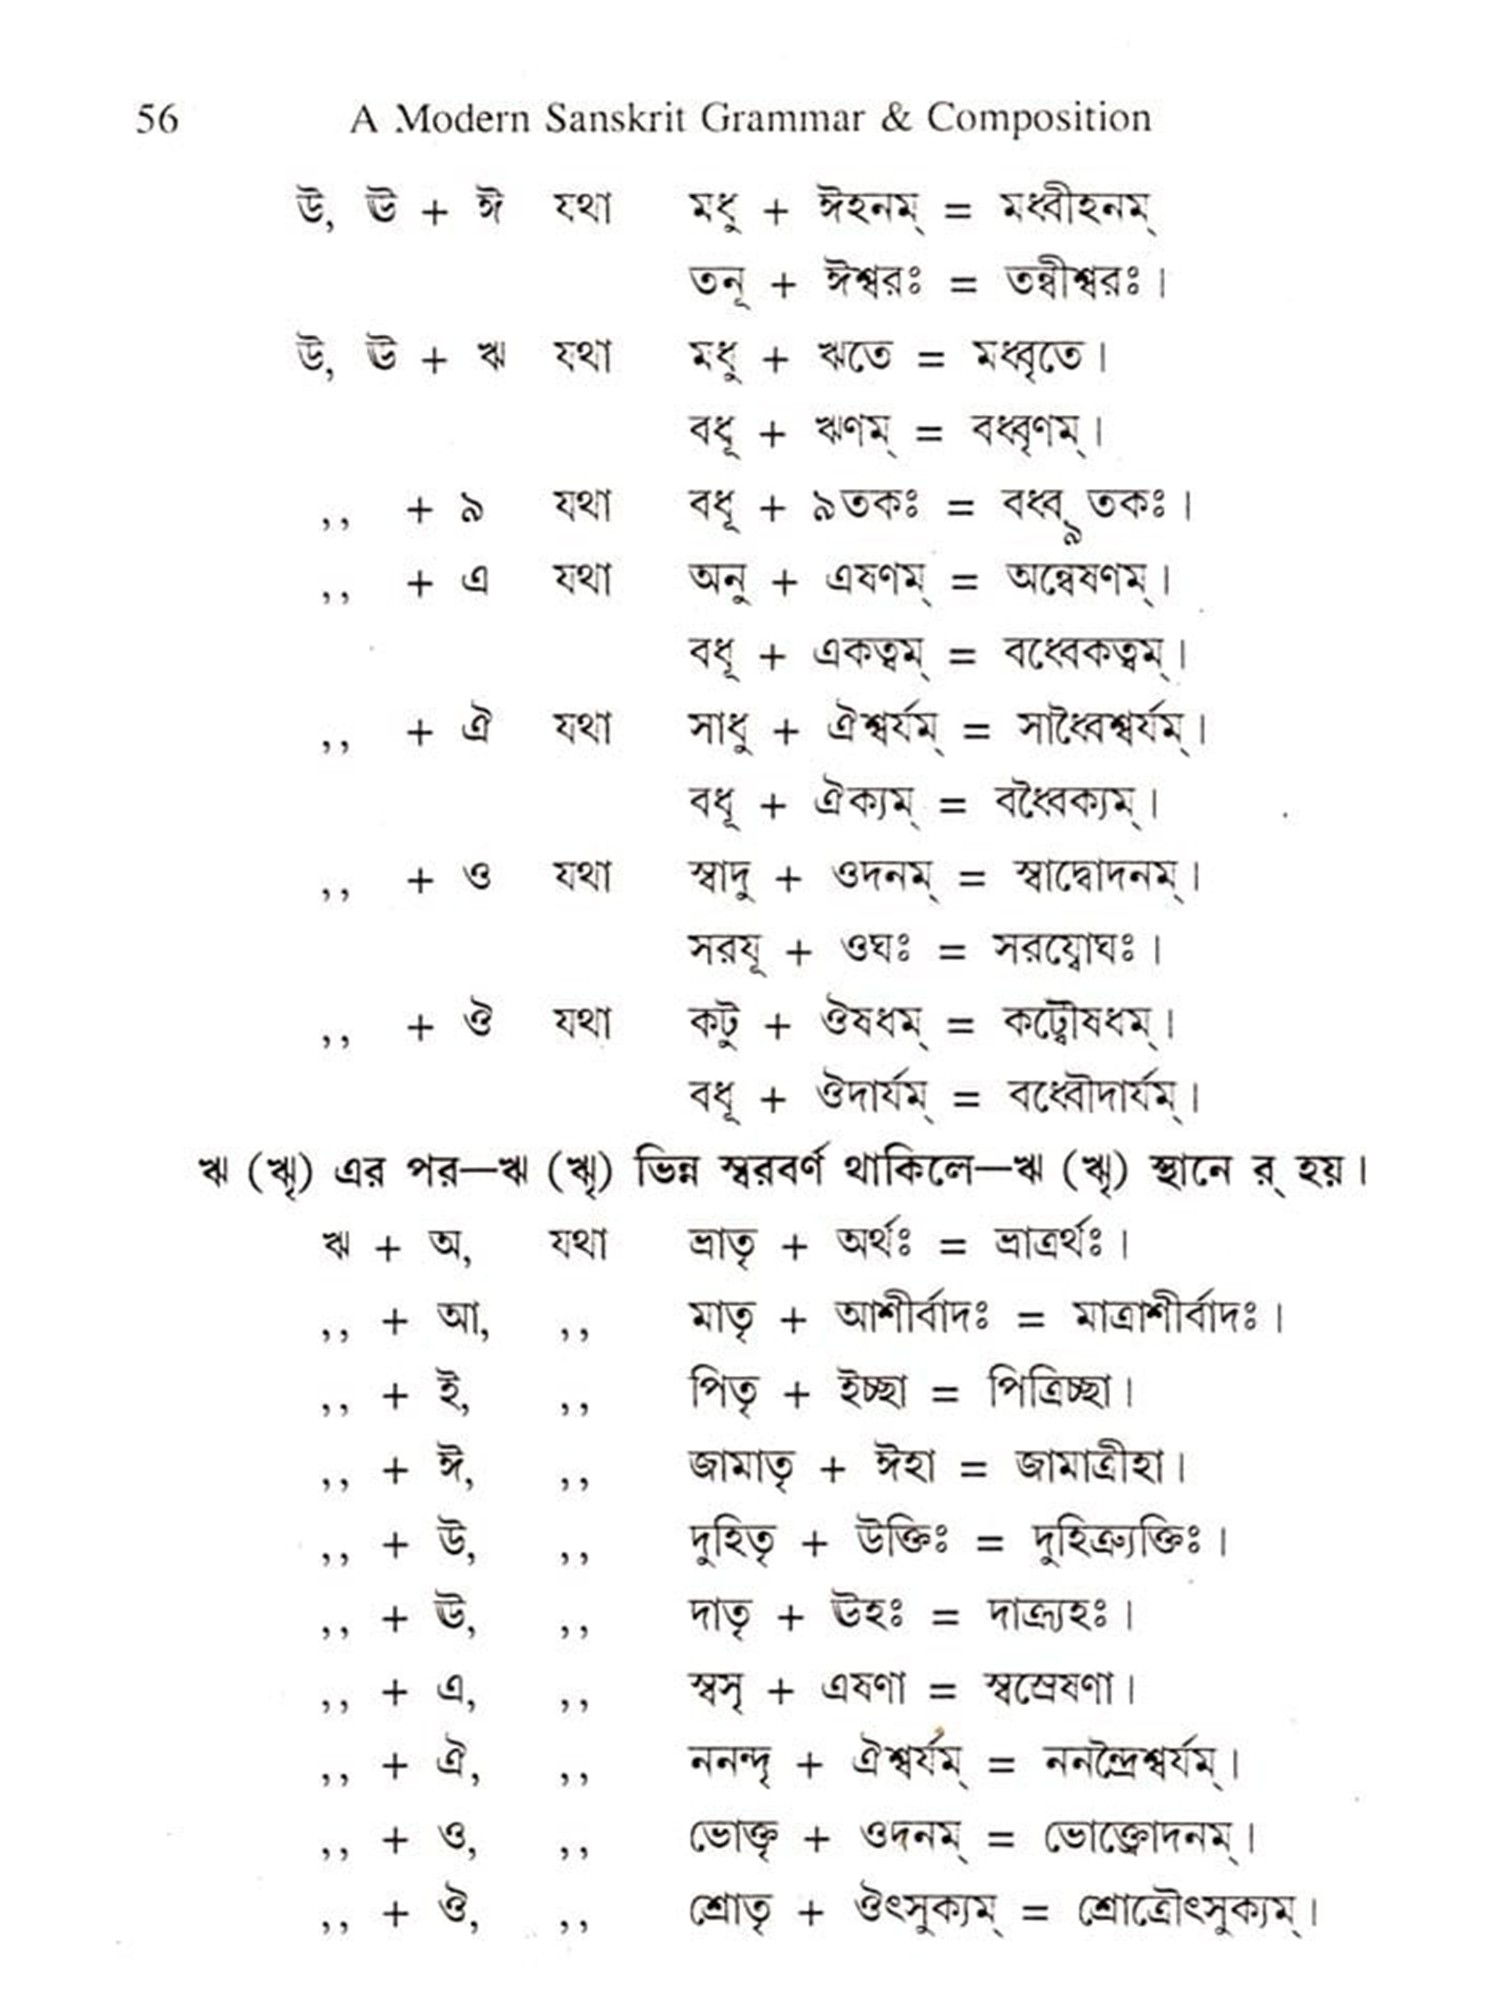 56 A Modern Sanskrit Grammar & Composition
উ, ঊ + ঈ যথা মধু + ঈহনম্ = মধ্বীহনম্
তনূ + ঈশ্বরঃ = তন্বীশ্বরঃ।
উ, ঊ + ঋ যথা মধু + ঋতে = মধ্বৃতে।
বধূ + ঋণম্ = বধ্বৃণম্।
,, + ঌ যথা বধূ + ঌতকঃ = বধ্বৢতকঃ।
,, + এ যথা অনু + এষণম্ = অন্বেষণম্।
বধূ + একত্বম্ = বধ্বেকত্বম্।
,, + ঐ যথা সাধু + ঐশ্বর্যম্ = সাধ্বৈশ্বর্যম্।
বধূ + ঐক্যম্ = বধ্বৈক্যম্।
,, + ও যথা স্বাদু + ওদনম্ = স্বাদ্বোদনম্।
সরযূ + ওঘঃ = সরয্বোঘঃ।
,, + ঔ যথা কটু + ঔষধম্ = কট্বৌষধম্।
বধূ + ঔদার্যম্ = বধ্বৌদার্যম্।
ঋ (ৠ) এর পর—ঋ (ৠ) ভিন্ন স্বরবর্ণ থাকিলে—ঋ (ৠ) স্থানে র্ হয়।
ঋ + অ, যথা ভ্রাতৃ + অর্থঃ = ভ্রাত্রর্থঃ।
,, + আ, ,, মাতৃ + আশীর্বাদঃ = মাত্রাশীর্বাদঃ।
,, + ই, ,, পিতৃ + ইচ্ছা = পিত্রিচ্ছা।
,, + ঈ, ,, জামাতৃ + ঈহা = জামাত্রীহা।
,, + উ, ,, দুহিতৃ + উক্তিঃ = দুহিত্র্যুক্তিঃ।
,, + ঊ, ,, দাতৃ + ঊহঃ = দাত্র্যূহঃ।
,, + এ, ,, স্বসৃ + এষণা = স্বস্রেষণা।
,, + ঐ, ,, ননন্দৃ + ঐশ্বর্যম্ = ননন্দ্রৈশ্বর্যম্।
,, + ও, ,, ভোক্তৃ + ওদনম্ = ভোক্ত্রোদনম্।
,, + ঔ, ,, শ্রোতৃ + ঔৎসুক্যম্ = শ্রোত্রৌৎসুক্যম্।